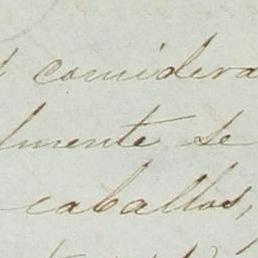 considera
lmente se
caballos,